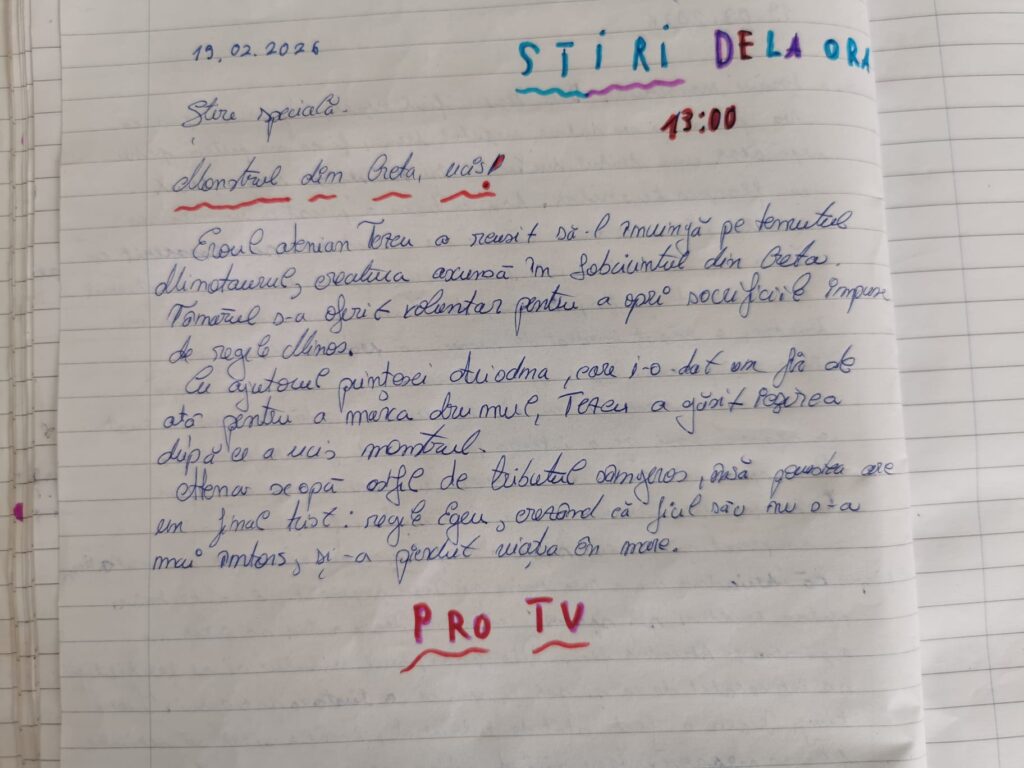 19.02.2026
STIRI DE LA ORA
13:00
Știre specială.
Monstrul din Creta, ucis!
Eroul atenian Tezeu a reusit să-l învingă pe temutul
Minotaurul, creatura ascunsă în Labirintul din Creta.
Tânărul s-a oferit voluntar pentru a opri sacrificiile impuse
de regele Minos.
Cu ajutorul prințesei Ariadna, care i-a dat un fir de
ață pentru a marca drumul, Tezeu a găsit ieșirea
după ce a ucis monstrul.
Atena scapă astfel de tributul sângeros, însă povestea are
un final trist: regele Egeu, crezând că fiul său nu s-a
mai întors, și-a pierdut viața în mare.
PRO TV